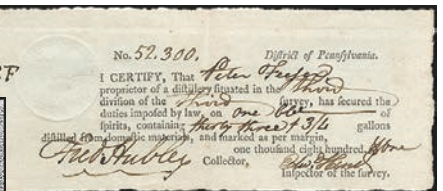 No. 52.300. District of Pennsylvania.
I CERTIFY, That Peter
proprietor of a distillery situated in the third
division of the third survey, has secured the
duties imposed by law, on one bbl of
spirits, containing thirty three & 3/4 gallons
distilled from domestic materials, and marked as per margin,
one thousand eight hundred, & one
Fred Hubley Collector,
Inspector of the survey.